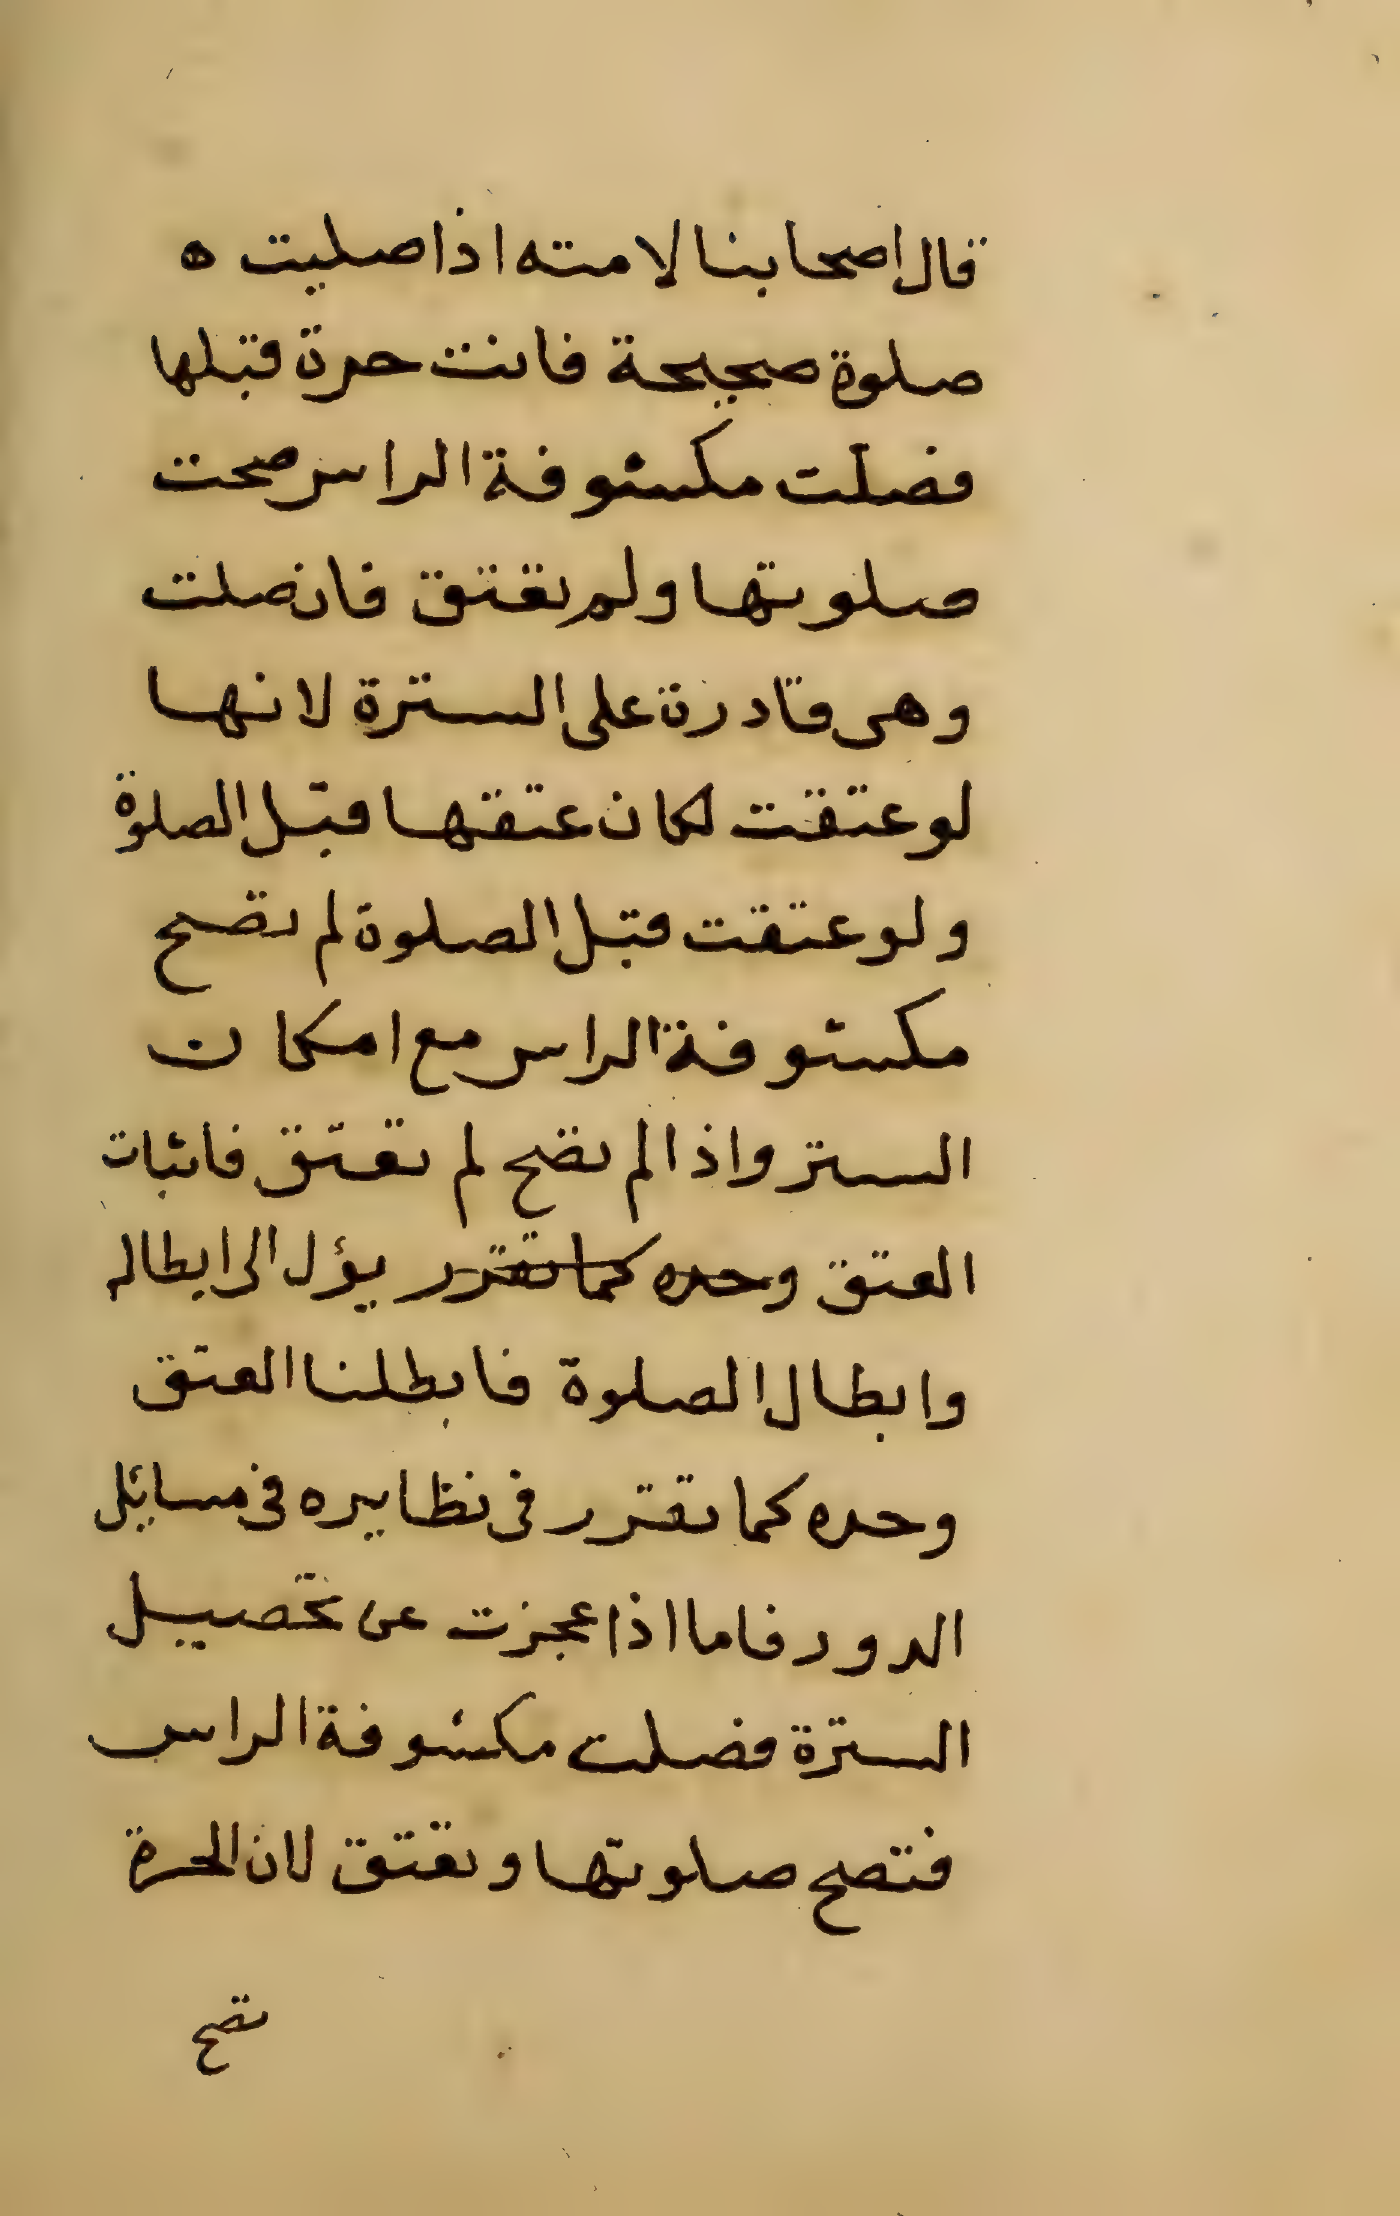 قال اصحابنا لامته اذا صليت ه
صلوة صحيحة فانت حرة قبلها
فصلت مكشوفة الراس صحت
صلوتها ولم تعتق فان صلت
وهى قادرة على السترة لانها
لو عتقت لكان عتقها قبل الصلوة
ولو عتقت قبل الصلوة لم تصح
مكشوفة الراس مع امكان
الستر واذا لم تصح لم تعتق فاثبات
العتق وحده كما تقرر يؤل الى ابطاله
وابطال الصلوة فابطلنا العتق
وحده كما تقرر فى نظايره فى مسائل
الدور فاما اذا عجزت عن تحصيل
السترة فصلت مكشوفة الراس
فتصح صلوتها وتعتق لان الحرة
تصح